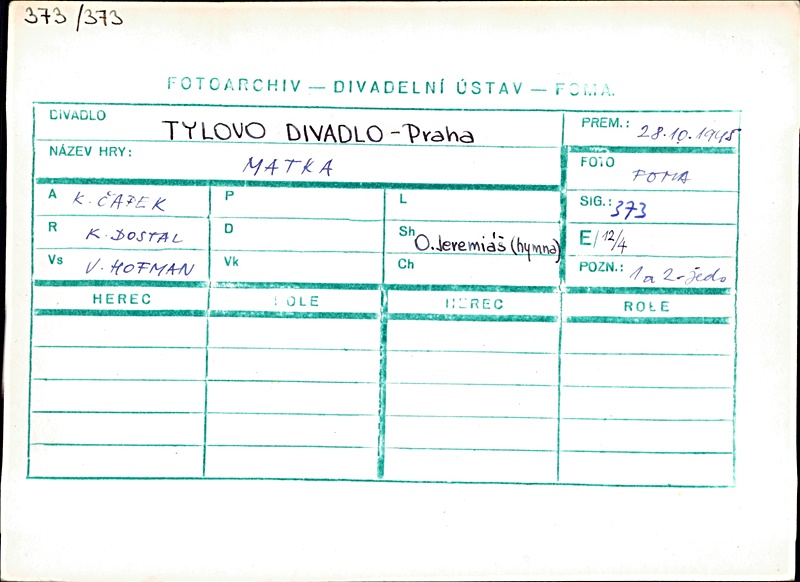 373/373
FOTOARCHIV — DIVADELNÍ ÚSTAV — FOMA
DIVADLO
TYLOVO DIVADLO - Praha
PREM.: 28.10.1945
NÁZEV HRY:
MATKA
FOTO
FOMA
A K. ČAPEK
P
L
SIG.: 373
R K. DOSTAL
D
Sh O. Jeremiáš (hymna)
E/12/4
Vs V. HOFMAN
Vk
Ch
POZN.: 1 a 2 - jedn.
HEREC ROLE HEREC ROLE